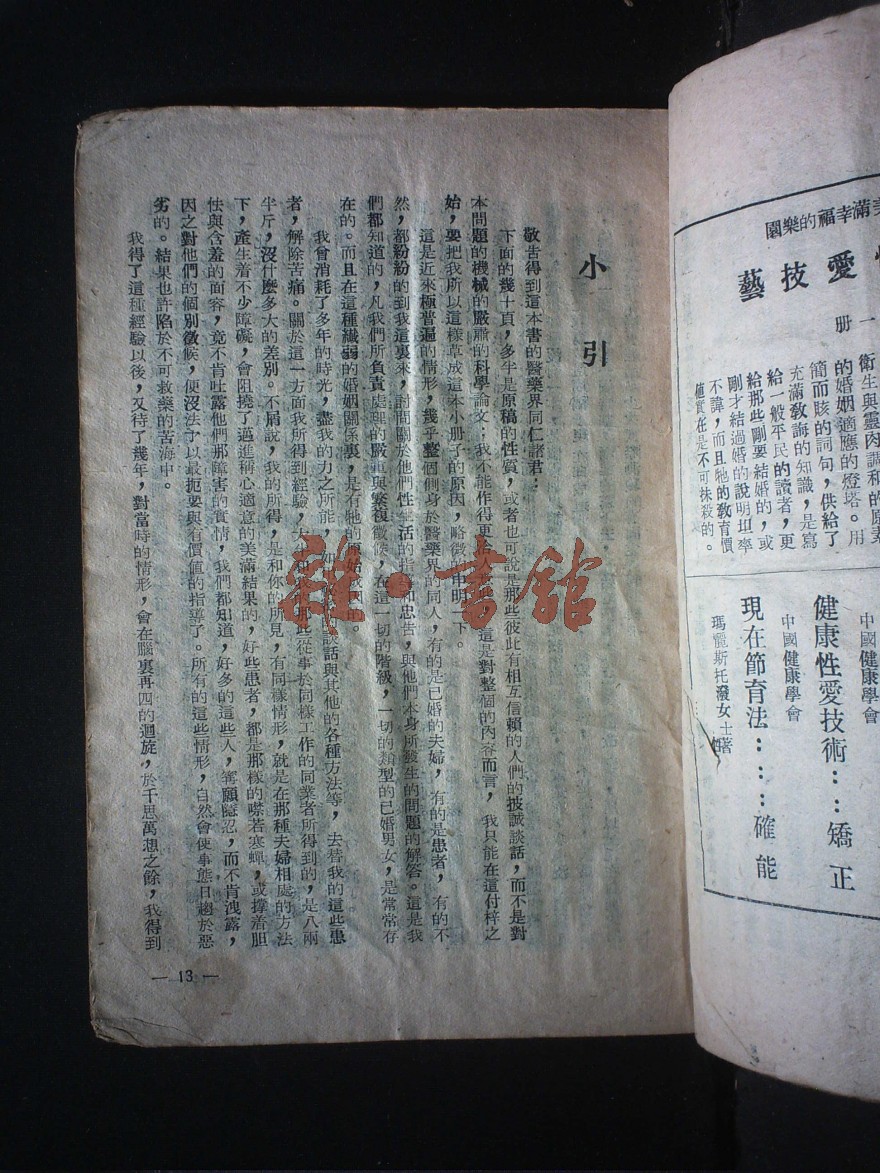 美滿幸福的樂園
愛技藝
一冊
衛生與靈肉調和的原素
的婚姻適應的燈塔。用
簡而賅的詞句，供給了
充滿教誨的知識，是寫
給一般平民的讀者，更
給那些剛要結婚的，或
剛才結過婚的說明坦率
不諱，而且牠的敎育價
値實在是不可抹殺的。
中國健康學會
健康性愛技術：：矯正
中國健康學會
現在節育法：：：：確能
瑪麗斯托潑女士著
小引
敬告得到這本書的醫藥界同仁諸君：
下面的幾十頁，多半是原稿的性質，或者也可說是那些彼此有相互信賴的人們的披誠談話，而不是對
本問題的機械的嚴肅的科學論文；我不能作得更
這是對整個的內容而言，我只能在這付梓之
始，要把我所以這樣草成這本小册子的原因，略微
申明一下。
這是近來極普遍的情形，幾乎整個側身於醫藥界的同人，有的是已婚的夫婦，有的是患者，有的不
然，都紛紛的到我這裏來，討問關於他們性生活的指
和忠告，與他們本身所發生的問題的解答。這是我
們都知道的，凡我們所負責處理的嚴重與繁複徵候，在這一切的階級，一切的類型的已婚男女，是常常存
在的。而且在這種纖弱的婚姻關係裏，是有牠的原始
我會消耗了多年的時光，盡我的力之所能，
談話與其他的各種方法等，去替我的這些患
者，解除苦痛。關於這一方面我所得到經驗，
和
那些從事於同樣工作的同業者所得到的，是八兩
半斤，沒什麼多大的差別。不屑說，我的所得，是和你的所見，有同樣情形，就是在那種夫婦相處的方法
下，產生着不少障礙，會阻撓了過進稱心適意的美滿結果的，好些患者，都是那樣的噤若寒蟬，或撐着胆
怯與含羞的面容，竟不肯吐露他們那障害的實情，我們都知道，好多的這些人，寧願隱忍，而不肯洩露，
因之對他們的個別徵候，便沒法予以最扼要與有價值的指導了。所有的這些情形，自然會使事態日趨於惡
劣的。結果也許陷於不可救藥的苦海中。
我得了這種經驗以後，又待了幾年，對當時的情形，會在腦裏再四的迴旋，於千思萬想之餘，我得到
— 13 —
雜·書館